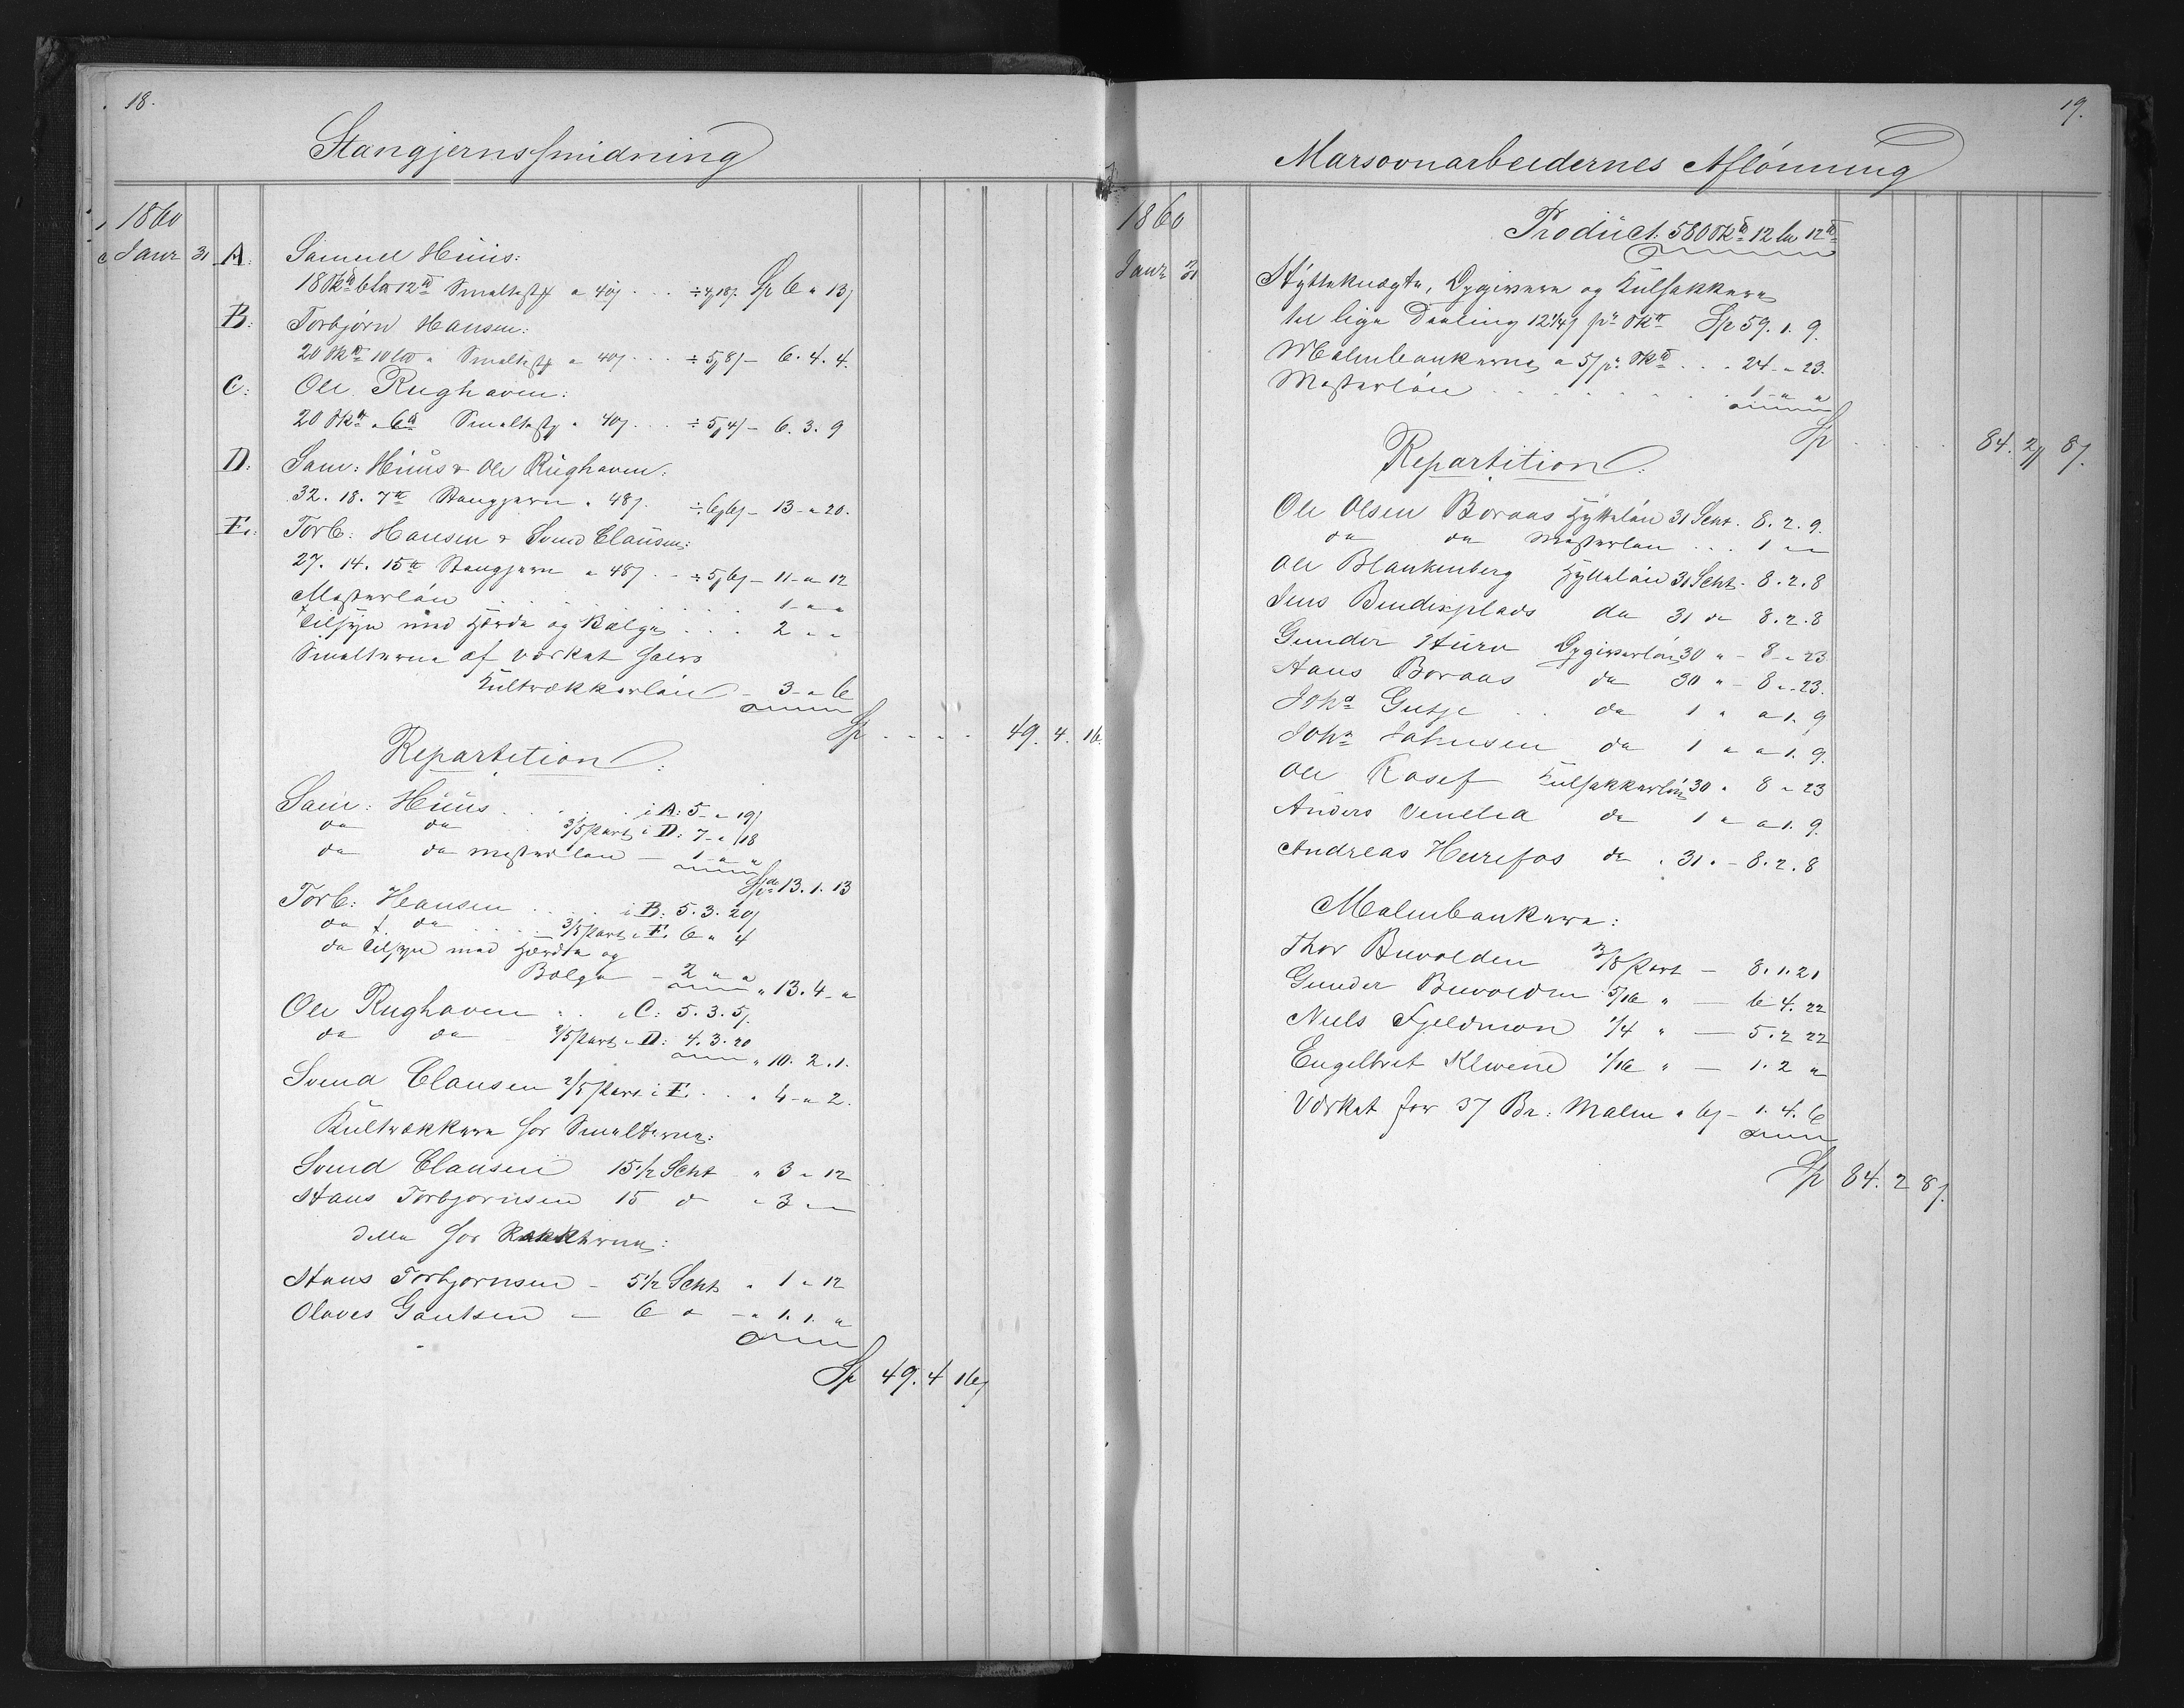 18.
Stangjernssmidning
1860
Janr 31 A. Samuel Huus:
18 Sk℔ 6 L℔ 12 ℔ Smeltest a 40ß . . . ÷ 4,18ß. Sp 6 " 13ß
B: Torbjørn Hansen:
20 Sk℔ 10 L℔ " Smeltest a 40ß . . . ÷ 5,8ß – 6. 4. 4.
C: Ole Rughaven:
20 Sk℔ " 6 ℔ Smeltest " 40ß . . . ÷ 5,4ß – 6. 3. 9
D. Sam: Huus & Ole Rughaven:
32. 18. 7 ℔ Stangjern " 48ß. ÷ 6,6ß – 13 - " 20.
E.: Torb: Hansen & Svend Clausen:
27. 14. 15 ℔ Stangjern a 48ß . . ÷ 5,6ß – 11 - " 12
Mesterløn . . . . . . . . 1 - " "
Tilsyn med Hærde og Bælge . . . 2 " "
Smelterne af Værket halvs
Kultrækkerløn – 3 - " 6
Sp . . . . 49. 4. 16.
Repartition:
Sam: Huus . . . . . i A: 5 - " 19ß
do do . . 3/5 Part i D: 7 - " 18
do do Mesterløn – 1 - " "
Spd 13. 1. 13
Torb: Hansen . . . . i B: 5. 3. 20ß
do do . . . . 3/5 Part i E. 6 " 4
do Tilsyn med Hærde og
Bælge – 2 " "
" 13. 4 - "
Ole Rughaven . . i C: 5. 3. 5ß.
do do 2/5 Part i D: 4. 3. 20
" 10. 2. 1.
Svend Clausen 2/5 Part i E. . . " 4 - " 2.
Kultrækkere for Smelterne:
Svend Clausen 15 1/2 Scht " 3 " 12
Hans Torbjørnsen 15 do " 3 " "
Dette for
Hans Torbjørnsen – 5 1/2 Scht " 1 " 12
Olaves Gautsen – 6 do – " 1. 1. "
Sp 49. 4 16ß
19.
Marsovnarbeidernes Aflønning
1860
Janr 31
Product: 580 Sk℔ 12 L℔ 12 ℔
Hytteknægte, Opgivere og Kulsækkere
til lige Deeling 12 1/4ß pr Sk℔ Sp 59. 1. 9.
Malmbankerne a 5ß pr Sk℔ . . . 24 - " 23.
Mesterløn . . . . . . . . 1 - " "
Sp . . . . 84. 2ʒ 8ß.
Repartition:
Ole Olsen Boraas Hytteløn 31 Scht. 8. 2. 9.
do do Mesterløn . . . 1 " "
Ole Blankenberg Hytteløn 31 Scht. 8. 2. 8
Jens Bendixplads do 31 do 8. 2. 8
Gunder Opgiverløn 30 " – 8 - " 23
Hans Boraas do 30 " – 8 " 23.
Johs . . do 1 " " 1. 9
Johs Johnsen do 1 " " 1. 9.
Ole Kasef Kulsækkerløn 30 " 8 " 23
Anders do 1 " " 1. 9.
Andreas Hurefos do . 31 . – 8. 2. 8
Malmbankere:
Thor Buvolden 3/8 Part – 8. 1. 21
Gunder Buvolden 5/16 " – 6 4. 22
Niels Fjeldmon 1/4 " – 5. 2 22
Engelbret Klevene 1/16 " – 1. 2 "
Værket for 37 Br: Malm a 6ß – 1. 4. 6
Sp 84. 2 8ß.